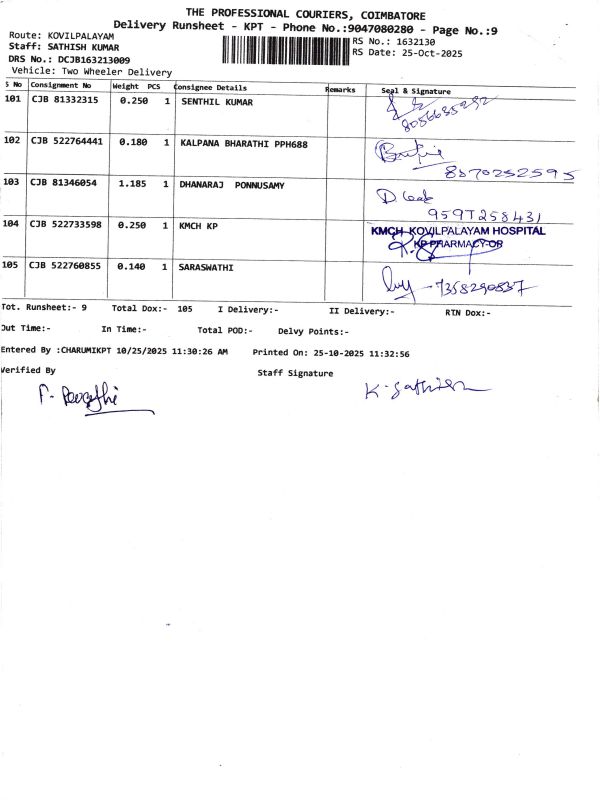 THE PROFESSIONAL COURIERS, COIMBATORE
Delivery Runsheet - KPT - Phone No.:9047080280 - Page No.:9
Route: KOVILPALAYAM
RS No.: 1632130
Staff: SATHISH KUMAR
RS Date: 25-Oct-2025
DRS No.: DCJB163213009
Vehicle: Two Wheeler Delivery
S No Consignment No Weight PCS Consignee Details Remarks Seal & Signature
101 CJB 81332315 0.250 1 SENTHIL KUMAR
8056635292
102 CJB 522764441 0.180 1 KALPANA BHARATHI PPH688
8870252595
103 CJB 81346054 1.185 1 DHANARAJ PONNUSAMY
9597258431
104 CJB 522733598 0.250 1 KMCH KP
KMCH KOVILPALAYAM HOSPITAL
KP-PHARMACY-OP
105 CJB 522760855 0.140 1 SARASWATHI
7358290837
Tot. Runsheet:- 9 Total Dox:- 105 I Delivery:- II Delivery:- RTN Dox:-
Out Time:- In Time:- Total POD:- Delvy Points:-
Entered By :CHARUMIKPT 10/25/2025 11:30:26 AM Printed On: 25-10-2025 11:32:56
Verified By Staff Signature
K. Sathish